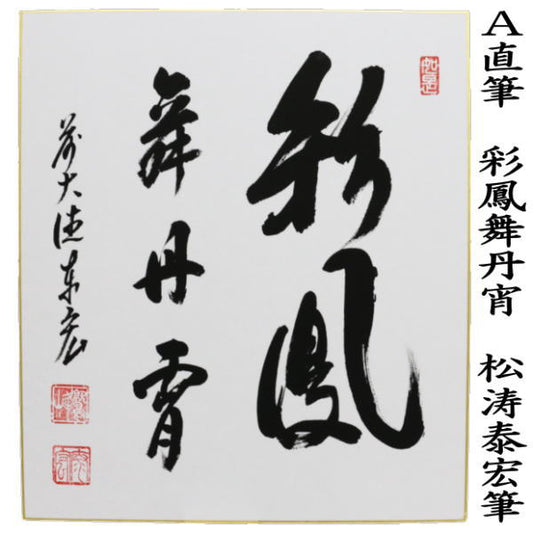 A直筆 彩鳳舞丹宵 松涛泰宏筆
彩鳳
舞丹霄
前大徳泰宏
如是